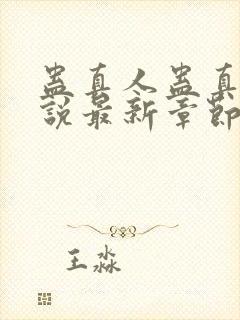 蛊真人蛊真
说最新章节
王淼